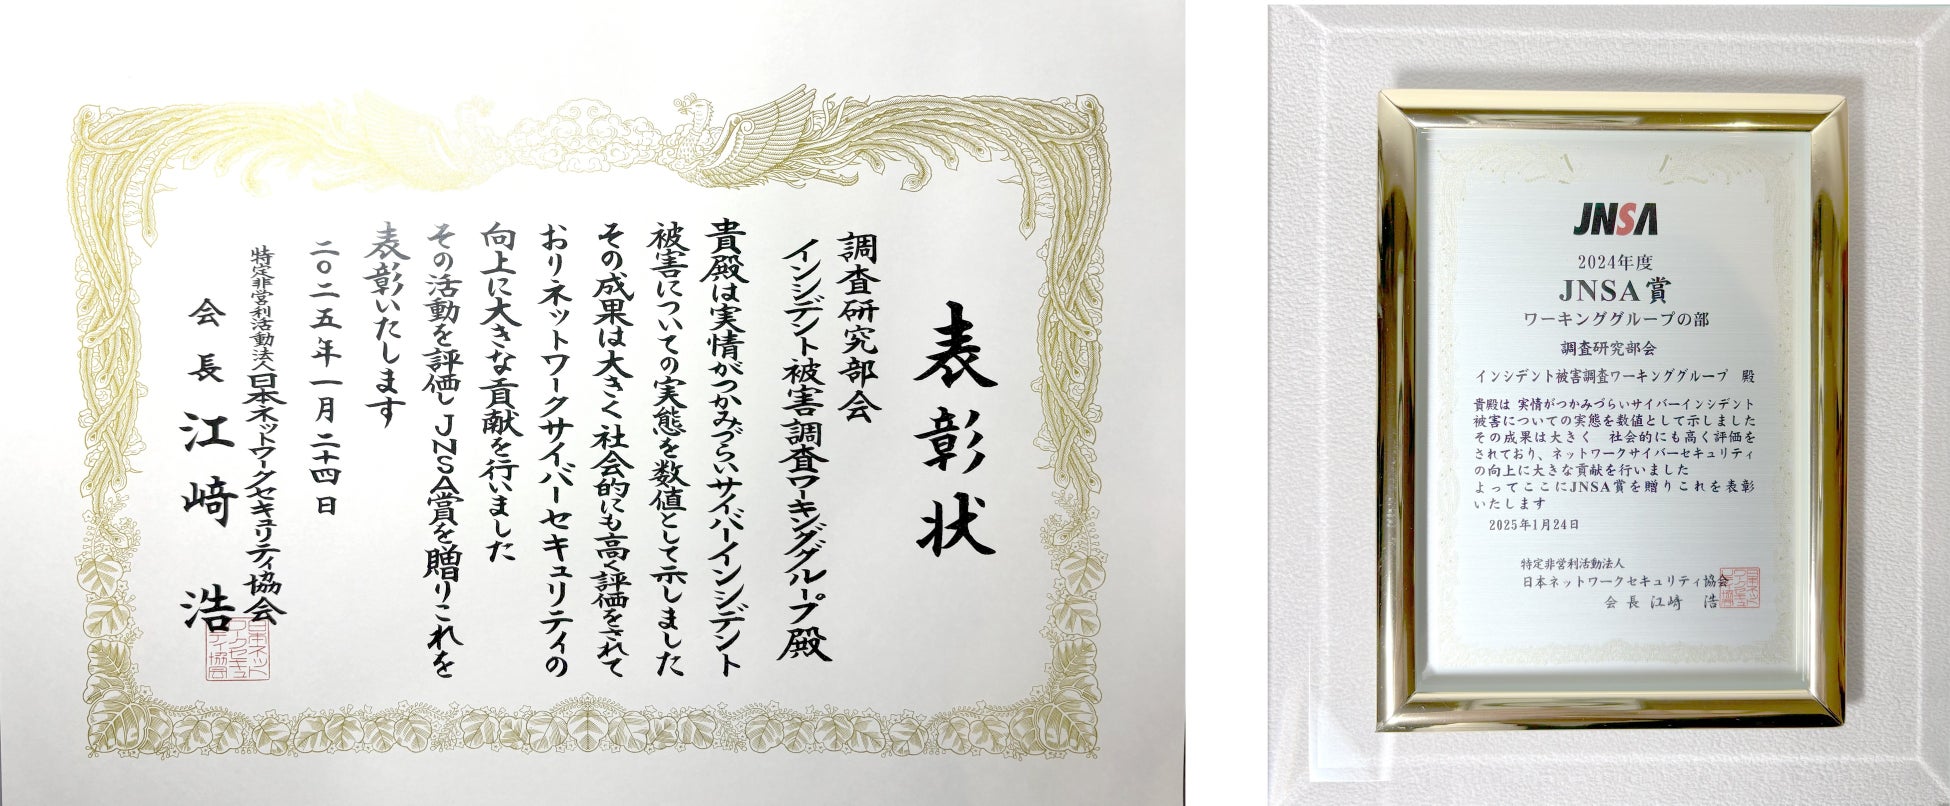 表彰状
調査研究部会
インシデント被害調査ワーキンググループ殿
貴殿は実情がつかみづらいサイバーインシデント
被害についての実態を数値として示しました
その成果は大きく社会的にも高く評価をされて
おりネットワークサイバーセキュリティの
向上に大きな貢献を行いました
その活動を評価しJNSA賞を贈りこれを
表彰いたします
二〇二五年一月二十四日
特定非営利活動法人日本ネットワークセキュリティ協会
会長 江﨑 浩
日本ネットワークセキュリティ協会
JNSA
2024年度
JNSA賞
ワーキンググループの部
調査研究部会
インシデント被害調査ワーキンググループ 殿
貴殿は 実情がつかみづらいサイバーインシデント
被害についての実態を数値として示しました
その成果は大きく 社会的にも高く評価を
されており、ネットワークサイバーセキュリティ
の向上に大きな貢献を行いました
よってここにJNSA賞を贈りこれを表彰
いたします
2025年1月24日
特定非営利活動法人
日本ネットワークセキュリティ協会
会長 江﨑 浩
日本ネットワークセキュリティ協会